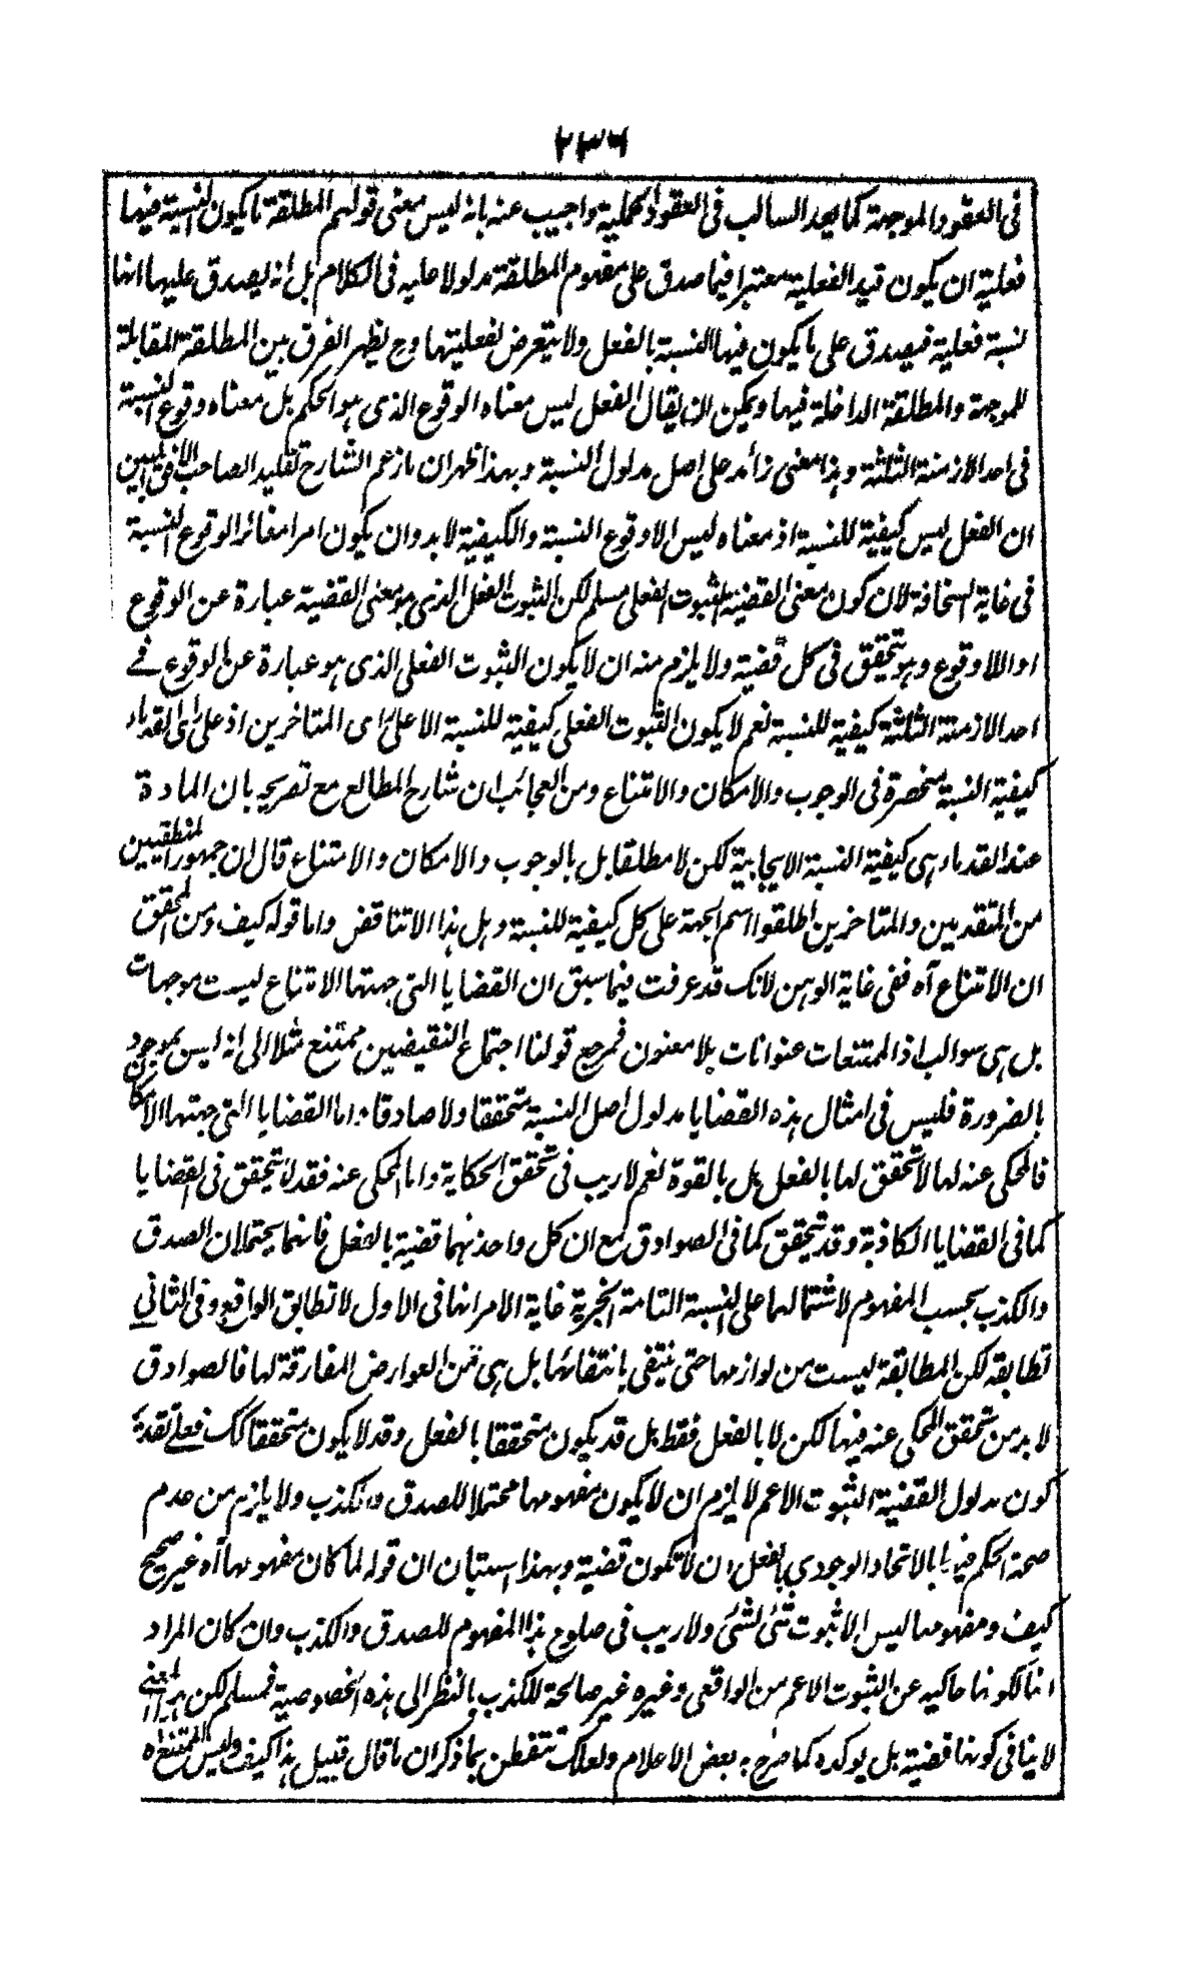 ٢٣٦
فى العقود الموجهة كما يعد السالب فى العقود الحملية واجيب عنه بانه ليس معنى قولهم المطلقة ما يكون النسبة فيها
فعلية ان يكون قيد الفعلية معتبرا فيما صدق على مفهوم المطلقة مدلولا عليه فى الكلام بل انه يصدق عليها انها
نسبة فعلية فيصدق على ما يكون فيها النسبة بالفعل ولا يتعرض لفعليتها وح يظهر الفرق بين المطلقة المقابلة
للموجهة والمطلقة الداخلة فيها ويمكن ان يقال الفعل ليس معناه الوقوع الذى هو الحكم بل معناه وقوع النسبة
فى احد الازمنة الثلثة وهذا معنى زائد على اصل مدلول النسبة وبهذا ظهر ان ما زعم الشارح تقليد الصاحب الافق المبين
ان الفعل ليس كيفية للنسبة اذ معناه ليس الا وقوع النسبة والكيفية لا بد وان يكون امرا مغائرا لوقوع النسبة
فى غاية السخافة لان كون معنى القضية الثبوت الفعلى مسلم لكن الثبوت الفعل الذى هو معنى القضية عبارة عن الوقوع
او اللا وقوع وهو يتحقق فى كل قضية ولا يلزم منه ان لا يكون الثبوت الفعلى الذى هو عبارة عن الوقوع فے
احد الازمنة الثلثة كيفية للنسبة نعم لا يكون الثبوت الفعلى كيفية للنسبة الا على راى المتاخرين اذ على راى القدماء
كيفية النسبة منحصرة فى الوجوب والامكان والامتناع ومن العجائب ان شارح المطالع مع تصريحه بان المادة
عند القدماء هى كيفية النسبة الايجابية لكن لا مطلقا بل بالوجوب والامكان والامتناع قال ان جمهور المنطقيين
من المتقدمين والمتاخرين اطلقوا اسم الجهة على كل كيفية للنسبة وهل هذا الا تناقض واما قوله كيف ومن المحقق
ان الامتناع آه ففى غاية الوهن لانك قد عرفت فيما سبق ان القضايا التى جهتها الامتناع ليست موجهات
بل هى سوالب اذ الممتنعات عنوانات بلا معنون فمرجع قولنا اجتماع النقيضين ممتنع مثلا الى انه ليس بموجود
بالضرورة فليس فى امثال هذه القضايا مدلول اصل النسبة متحققا ولا صادقا واما القضايا التى جهتها الامكان
فالمحكى عنه لها لا تحقق لها بالفعل بل بالقوة نعم لا ريب فى تحقق الحكاية واما المحكى عنه فقد لا يتحقق فى القضايا
كما فى القضايا الكاذبة وقد يتحقق كما فى الصوادق مع ان كل واحد منهما قضية بالفعل فانهما يحتملان الصدق
والكذب بحسب المفهوم لاشتمالهما على النسبة التامة الخبرية غاية الامر انها فى الاول لا تطابق الواقع وفى الثانى
تطابقه لكن المطابقة ليست من لوازمها حتى ينتفى بانتفائها بل هى من العوارض المفارقة لها فالصوادق
لا بد من تحقق المحكى عنه فيها لكن لا بالفعل فقط بل قد يكون متحققا بالفعل وقد لا يكون متحققا كك فعلے تقدير
كون مدلول القضية الثبوت الاعم لا يلزم ان لا يكون مفهومها محتملا للصدق والكذب ولا يلزم من عدم
صحة الحكم فيها بالاتحاد الوجودى بالفعل ان لا تكون قضية وبهذا استبان ان قوله لما كان مفهومها آه غير صحيح
كيف ومفهومها ليس الا ثبوت شئ لشئ ولا ريب فى صلوح هذا المفهوم للصدق والكذب وان كان المراد
انها لكونها حاكيه عن الثبوت الاعم من الواقعى وغيره غير صالحة للكذب بالنظر الى هذه الخصوصية فمسلم لكن هذا المعنى
لا ينافى كونها قضية بل يوكده كما صرح به بعض الاعلام ولعلك تتفطن بما ذكر ان ما قال قبيل هذا كيف وليس الممتنع اه